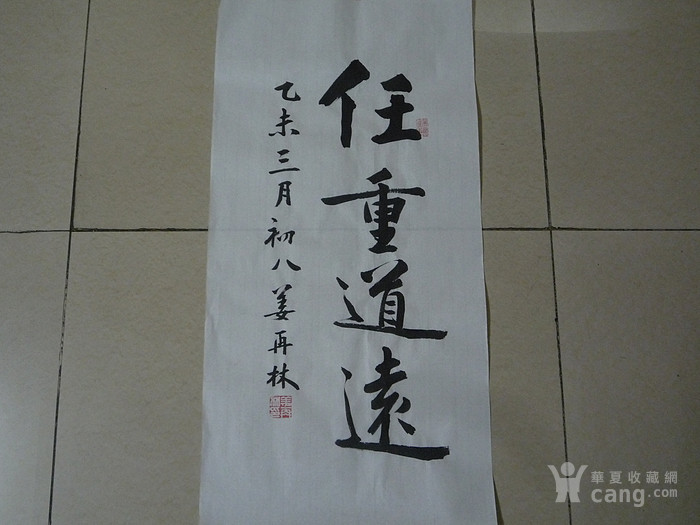 任重道遠
乙未三月初八姜再林
華夏收藏網
cang.com®